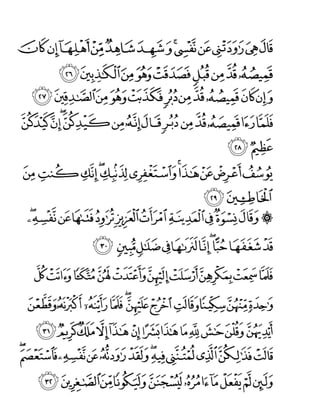 قَالَ هِيَ رَٰوَدَتْنِى عَن نَّفْسِى ۚ وَشَهِدَ شَاهِدٌ مِّنْ أَهْلِهَآ إِن كَانَ
قَمِيصُهُۥ قُدَّ مِن قُبُلٍ فَصَدَقَتْ وَهُوَ مِنَ ٱلْكَٰذِبِينَ ٢٦
وَإِن كَانَ قَمِيصُهُۥ قُدَّ مِن دُبُرٍ فَكَذَبَتْ وَهُوَ مِنَ ٱلصَّٰدِقِينَ ٢٧
فَلَمَّا رَءَا قَمِيصَهُۥ قُدَّ مِن دُبُرٍ قَالَ إِنَّهُۥ مِن كَيْدِكُنَّ ۖ إِنَّ كَيْدَكُنَّ
عَظِيمٌ ٢٨
يُوسُفُ أَعْرِضْ عَنْ هَٰذَا ۚ وَٱسْتَغْفِرِى لِذَنۢبِكِ ۖ إِنَّكِ كُنتِ مِنَ
ٱلْخَاطِـِٔينَ ٢٩
۞ وَقَالَ نِسْوَةٌ فِى ٱلْمَدِينَةِ ٱمْرَأَتُ ٱلْعَزِيزِ تُرَٰوِدُ فَتَىٰهَا عَن نَّفْسِهِۦ ۖ
قَدْ شَغَفَهَا حُبًّا ۖ إِنَّا لَنَرَىٰهَا فِى ضَلَٰلٍ مُّبِينٍ ٣٠
فَلَمَّا سَمِعَتْ بِمَكْرِهِنَّ أَرْسَلَتْ إِلَيْهِنَّ وَأَعْتَدَتْ لَهُنَّ مُتَّكَـًٔا وَءَاتَتْ كُلَّ
وَٰحِدَةٍ مِّنْهُنَّ سِكِّينًا وَقَالَتِ ٱخْرُجْ عَلَيْهِنَّ ۖ فَلَمَّا رَأَيْنَهُۥٓ أَكْبَرْنَهُۥ وَقَطَّعْنَ
أَيْدِيَهُنَّ وَقُلْنَ حَٰشَ لِلَّهِ مَا هَٰذَا بَشَرًا إِنْ هَٰذَآ إِلَّا مَلَكٌ كَرِيمٌ ٣١
قَالَتْ فَذَٰلِكُنَّ ٱلَّذِى لُمْتُنَّنِى فِيهِ ۖ وَلَقَدْ رَٰوَدتُّهُۥ عَن نَّفْسِهِۦ فَٱسْتَعْصَمَ ۖ
وَلَئِن لَّمْ يَفْعَلْ مَآ ءَامُرُهُۥ لَيُسْجَنَنَّ وَلَيَكُونًا مِّنَ ٱلصَّٰغِرِينَ ٣٢